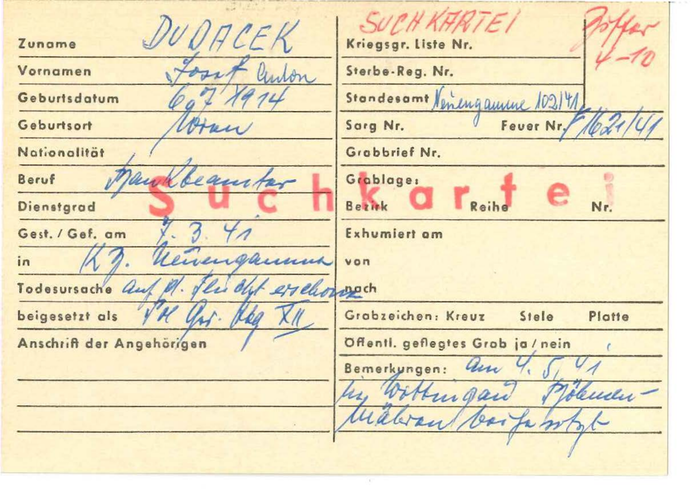 SUCHKARTEI
Ziffer
4-10
Zuname DUDACEK
Vornamen Josef Anton
Geburtsdatum 6.7.1914
Geburtsort
Nationalität
Beruf Bankbeamter
Dienstgrad
Gest./Gef. am 7.3.41
in KZ. Neuengamme
Todesursache auf d. Flucht erschossen
beigesetzt als XII
Anschrift der Angehörigen
Suchkartei
Kriegsgr. Liste Nr.
Sterbe-Reg. Nr.
Standesamt Neuengamme 102/41
Sarg Nr. Feuer Nr. 1621/41
Grabbrief Nr.
Grablage:
Bezirk Reihe Nr.
Exhumiert am
von
nach
Grabzeichen: Kreuz Stele Platte
Öffentl. gepflegtes Grab ja/nein
Bemerkungen: am 4.5.41
in Wittingau Böhmen-
Mähren beigesetzt